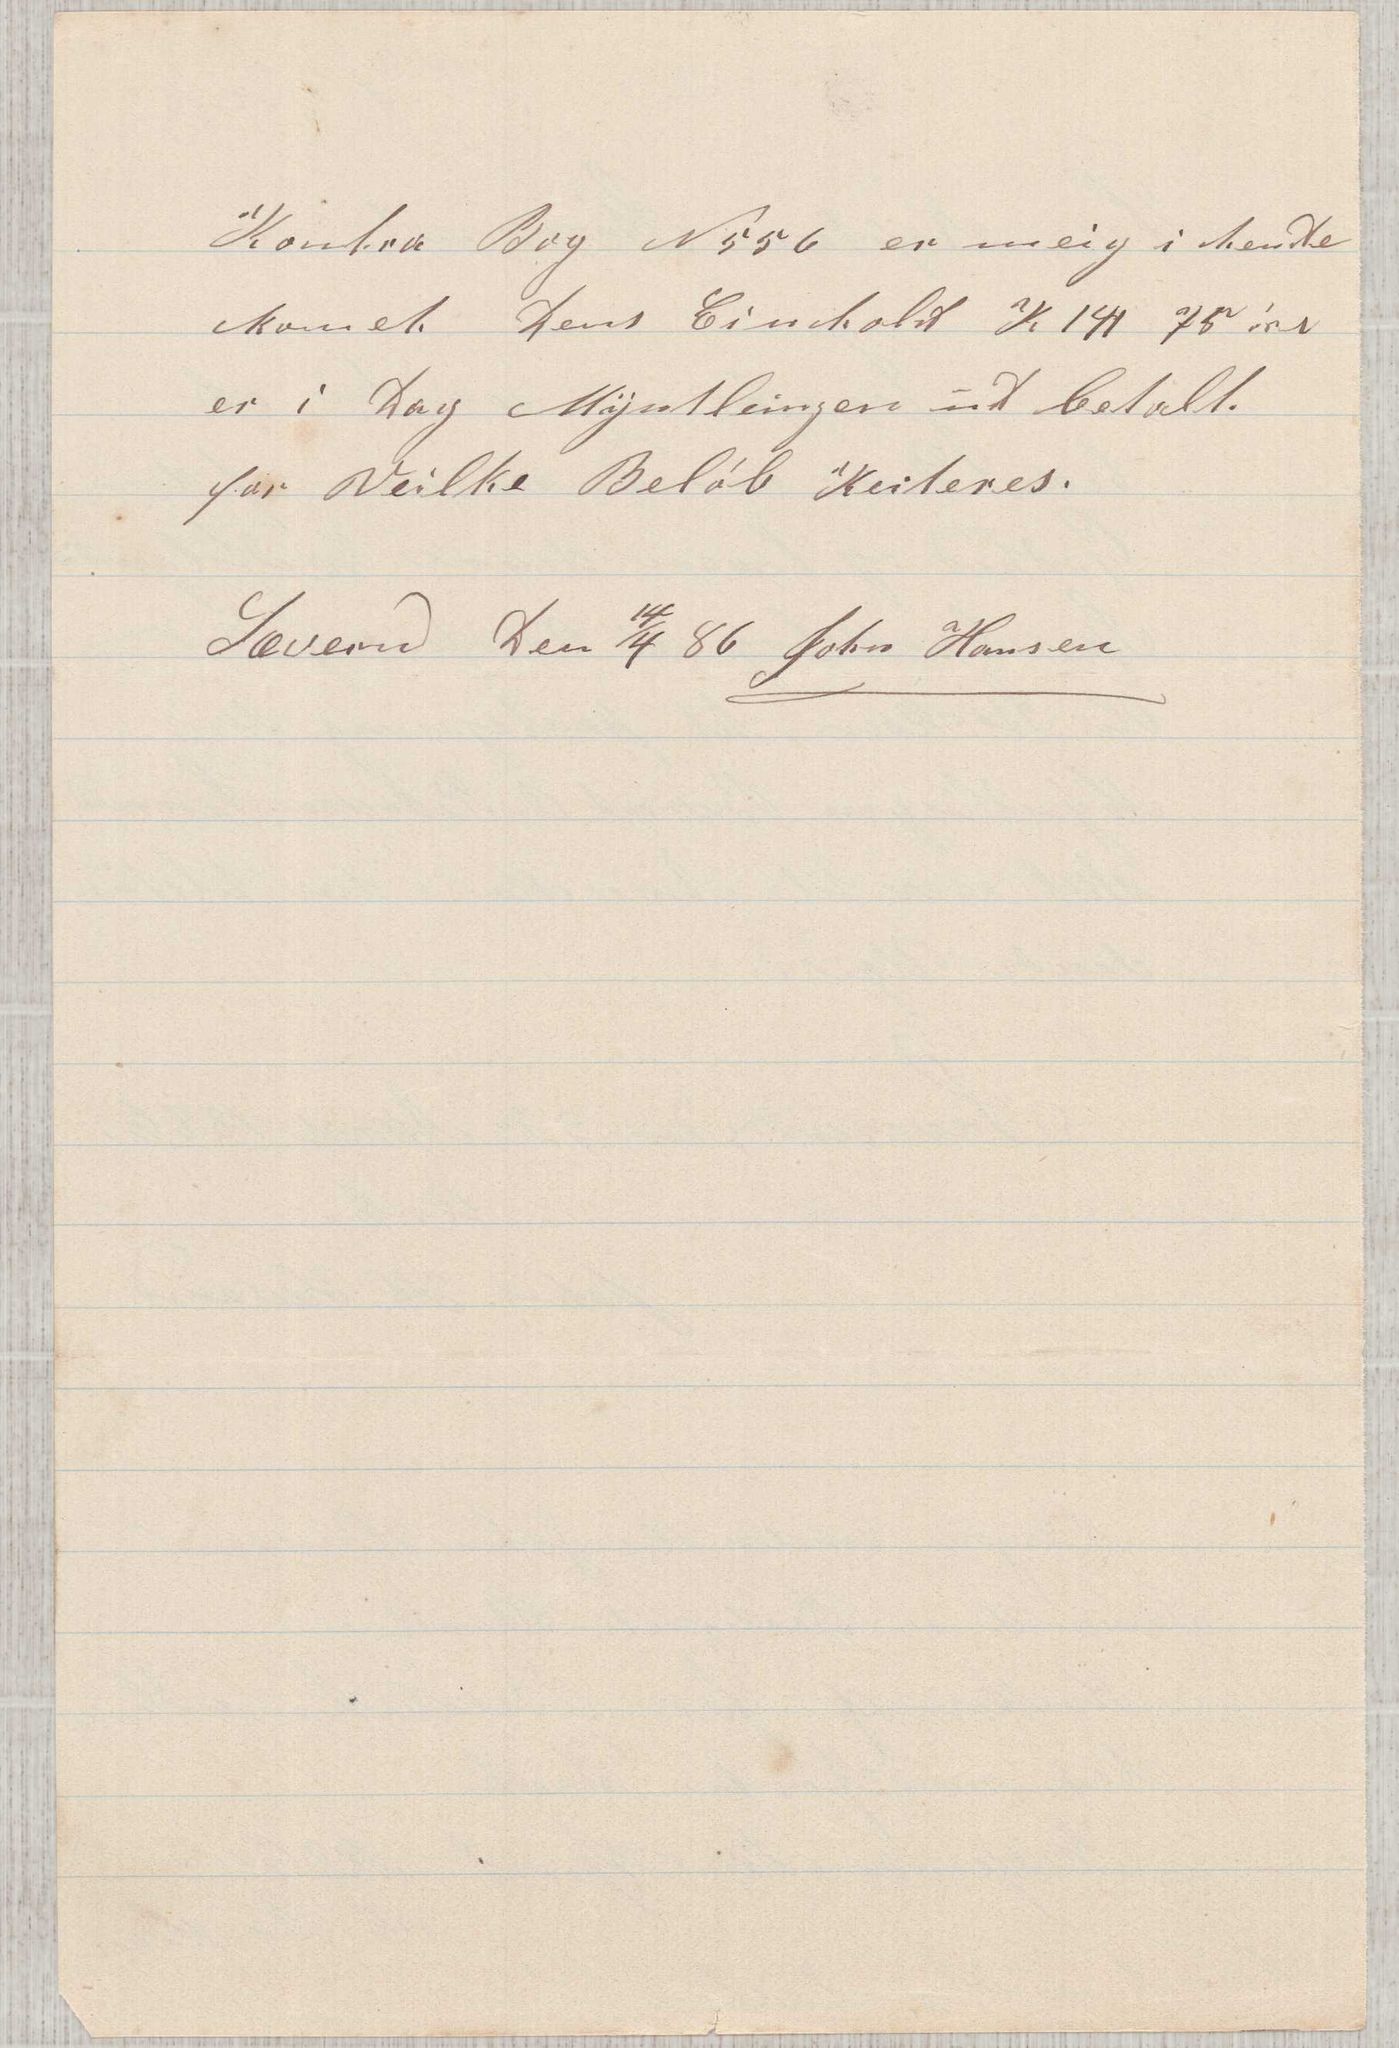 Kontra Bog N 556 er meig i hende
komet. Dens Einhold K 141 75 ør
er i Dag Myntlingen üd betalt.
for Veilke Beløb Kviteres.
Søvern Den 14/4 86 John Hansen